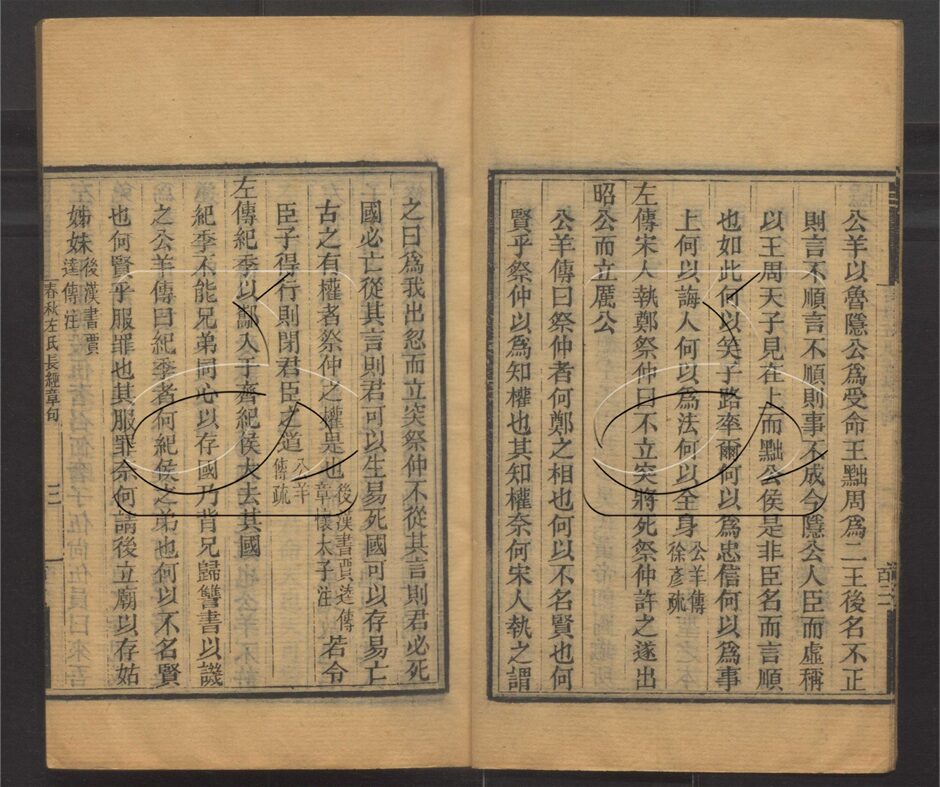 公羊以魯隱公為受命王黜周為二王後名不正
則言不順言不順則事不成今隱公人臣而虛稱
以王周天子見在上而黜公侯是非臣名而言順
也如此何以笑子路率爾何以為忠信何以為事
上何以誨人何以為法何以全身公羊傳徐彥疏
左傳宋人執鄭祭仲曰不立突將死祭仲許之遂出
昭公而立厲公
公羊傳曰祭仲者何鄭之相也何以不名賢也何
賢乎祭仲以為知權也其知權奈何宋人執之謂
之曰為我出忽而立突祭仲不從其言則君必死
國必亡從其言則君可以生易死國可以存易亡
古之有權者祭仲之權是也後漢書賈逵傳章懷太子注若令
臣子得行則閉君臣之道公羊傳疏
左傳紀季以酅入于齊紀侯大去其國
紀季不能兄弟同心以存國乃背兄歸讐書以譏
之公羊傳曰紀季者何紀侯之弟也何以不名賢
也何賢乎服罪也其服罪奈何請後立廟以存姑
姊妹後漢書賈逵傳注
春秋左氏長經章句
三